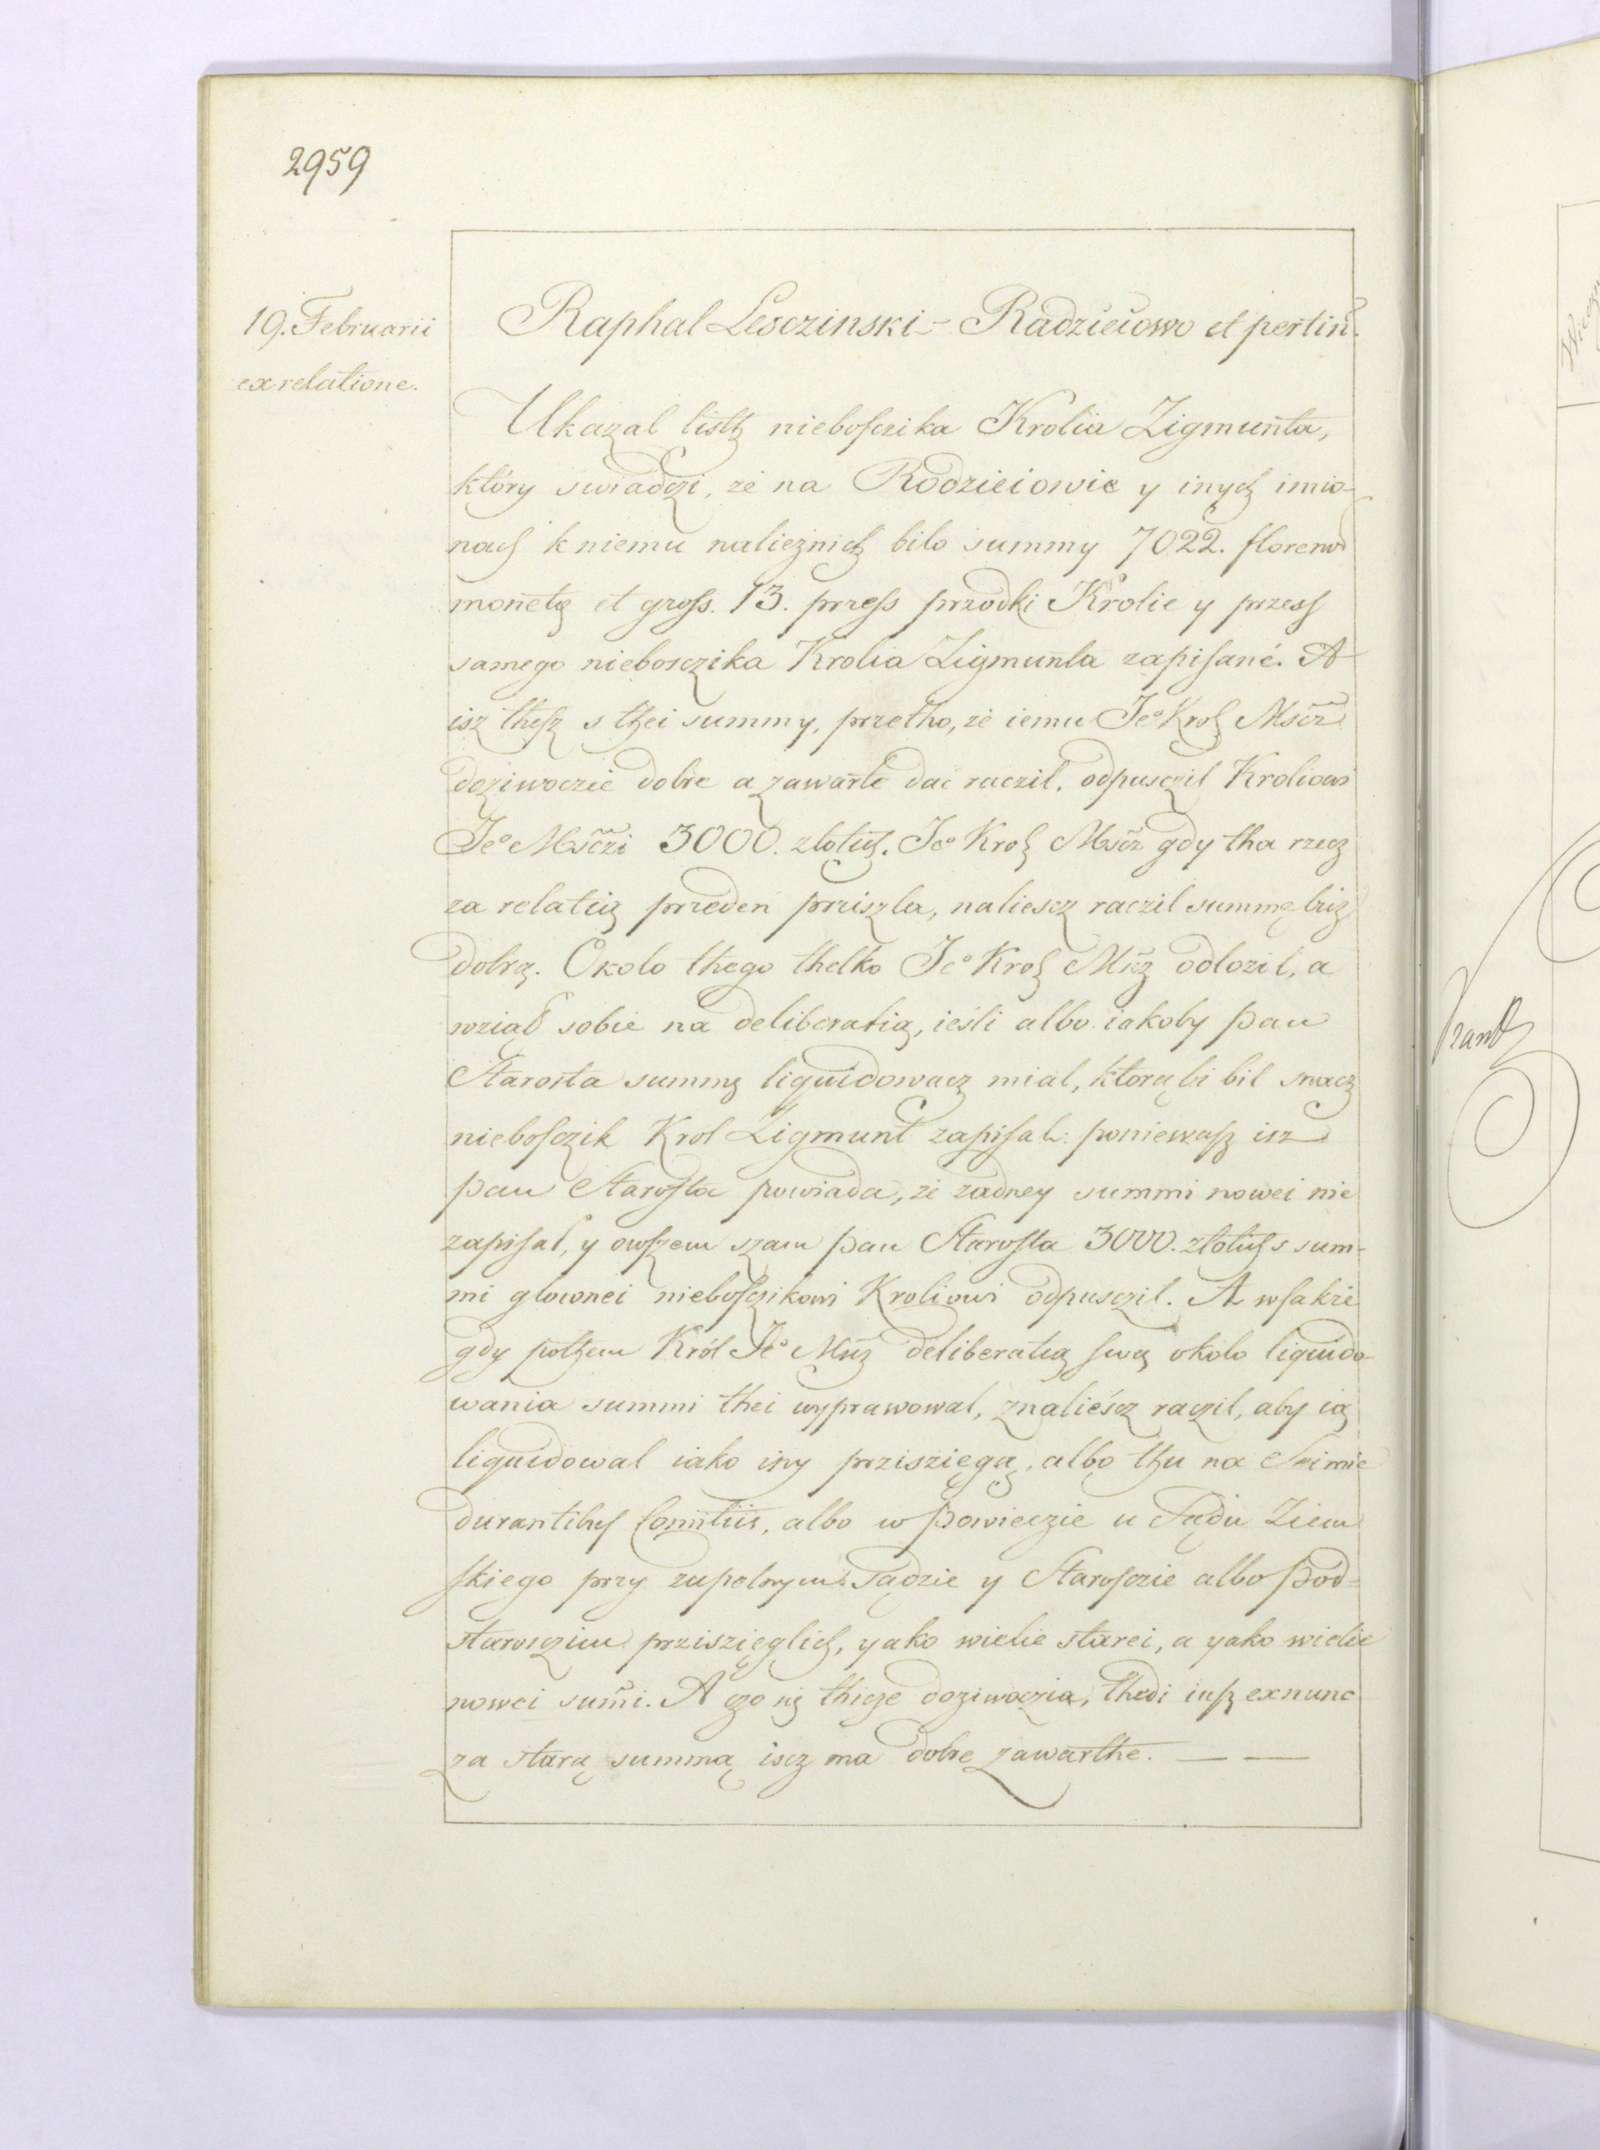 2959
19. Februarii
ex relatione.
Raphal Lesczinski - Radzieiowo et pertin.
Ukazal listh nieboſczika Krolia Zigmunta,
który swiadczi, ze na Rodzieiowie y inych imio-
nach k niemu naliężnich bilo summy 7022. florenw
monetę et groſs. 13. przeſs przodki Krolie y przesſ
samego nieboszczika Krolia Zigmunta zapiſané. A
isz theſz s thei summy, przetho, ze iemu Jeº Krol Mscz
dożiwoczie dobre a zawarte dać raczil, odpusczil Kroliowi
Jeº Msczi 3000. zlotich. Jeº Krol Mscz gdy tha rzecz
za relatią przeden prziszla, naliescz raczil summę bicz
dobrą. Około thego thelko Jeº Krol Mscz odlozil, a
wziął sobie na deliberatią, ieśli albo iakoby pan
Starosta summę liquidowacz mial, którąbi bil snacz
nieboſczik Krol Zigmunt zapiſal: poniewaſz isz
pan Staroſta powiada, że zadney summi nowei nie
zapiſał, y owſzem szam pan Staroſta 3000. zlotich s sum-
mi glownei nieboſczikowi Kroliowi odpusczil. A wſakże
gdy pothem Król Jeº Mscz deliberatią ſwą około liquido-
wania summi thei wyprawowal, znalieśćz raczil, aby ią
liquidowal iako iny prziszięgą, albo thu na Seimie
durantibus Comitiis, albo w powieczie u Sądu Ziem
ſkiego przy zupełnym Sądzie y Staroſczie albo pod-
starosczim prziszięglich, yako wielie starei, a yako wielie
nowei sumi. A czo się thicze dożiwoczia, thedi iuſz exnunc
za starą summą iscz ma dobre zawarthe. — —